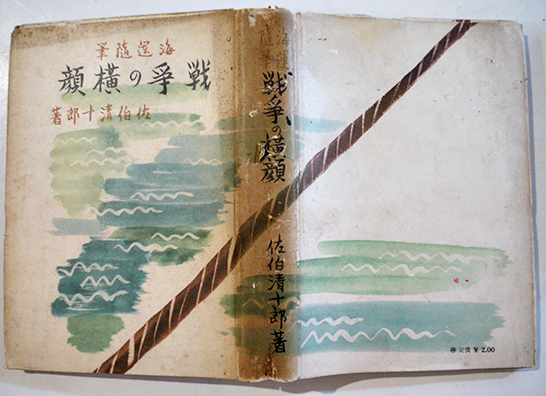 海運隨筆
戦爭の横顔
佐伯清十郎著
海運
隨筆
戦爭の横顔
佐伯清十郎著
定價 ¥ 2.00